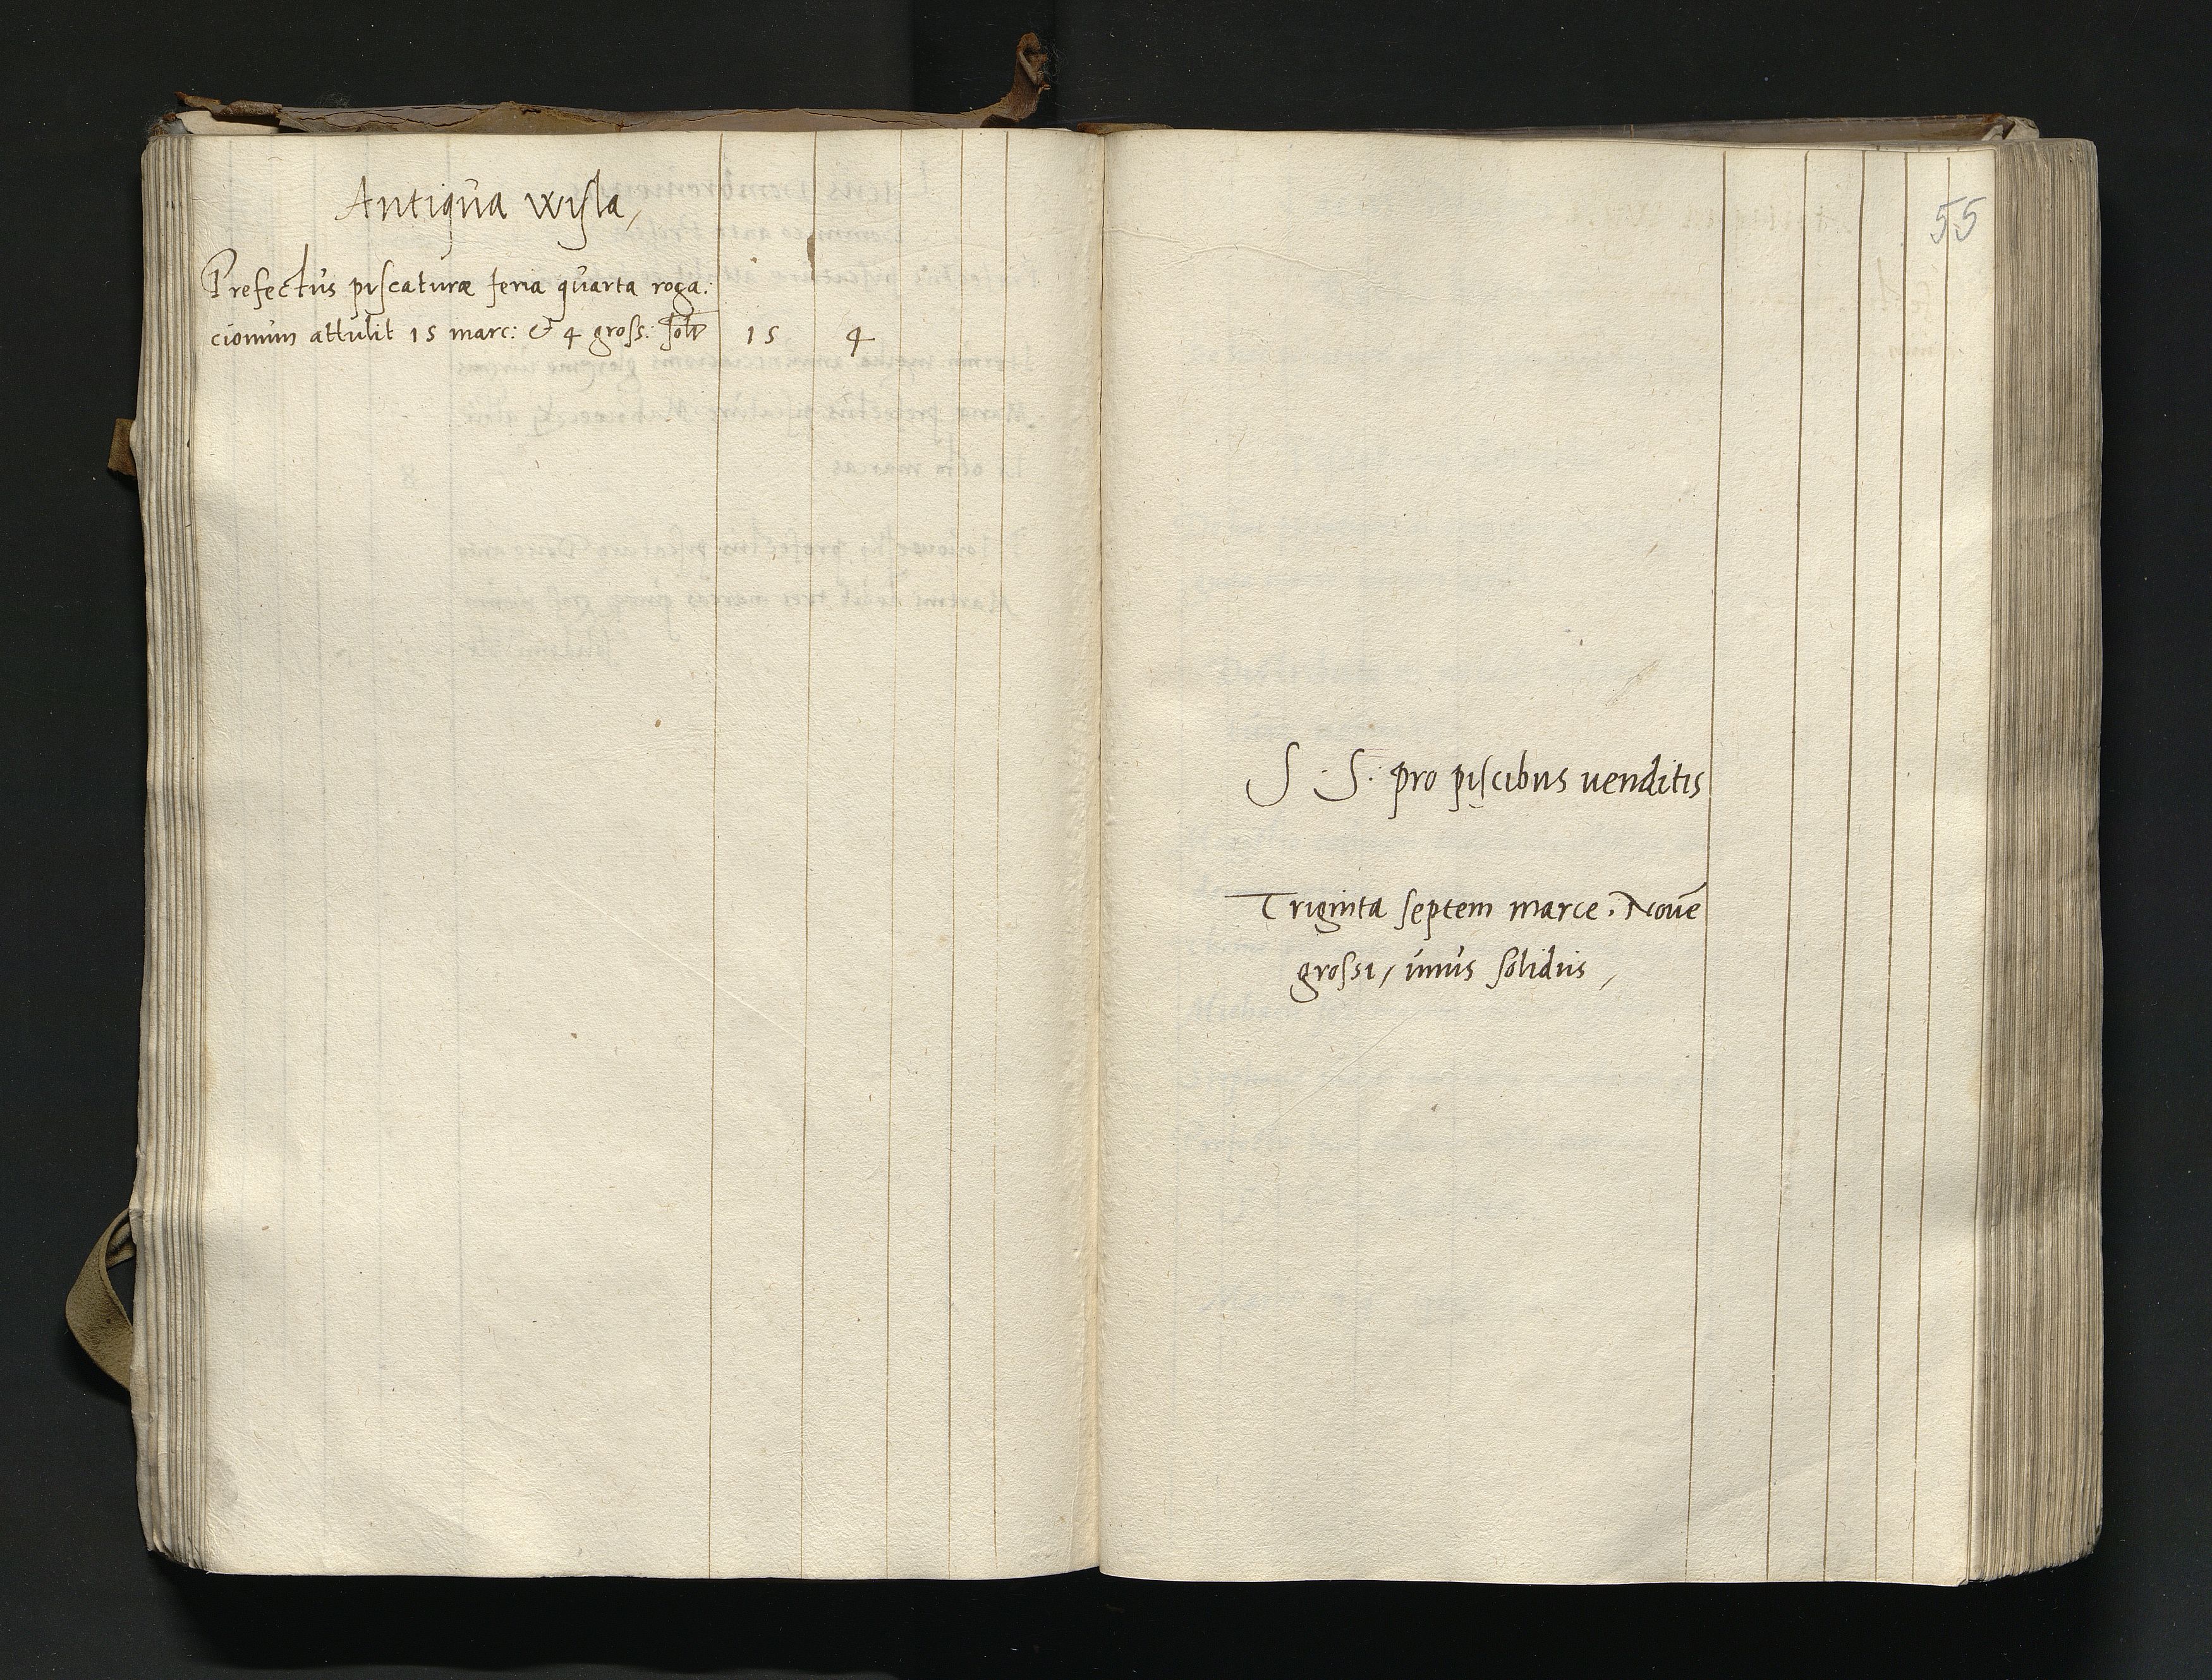 Antiqua wisla,
Prefectus piscaturæ feria quarta roga:
cionum attulit 15 marc: & 4 gross: 15 4
55
S. S. pro piscibus venditis
Triginta septem marce. Nouē
grossi, unus solidus,